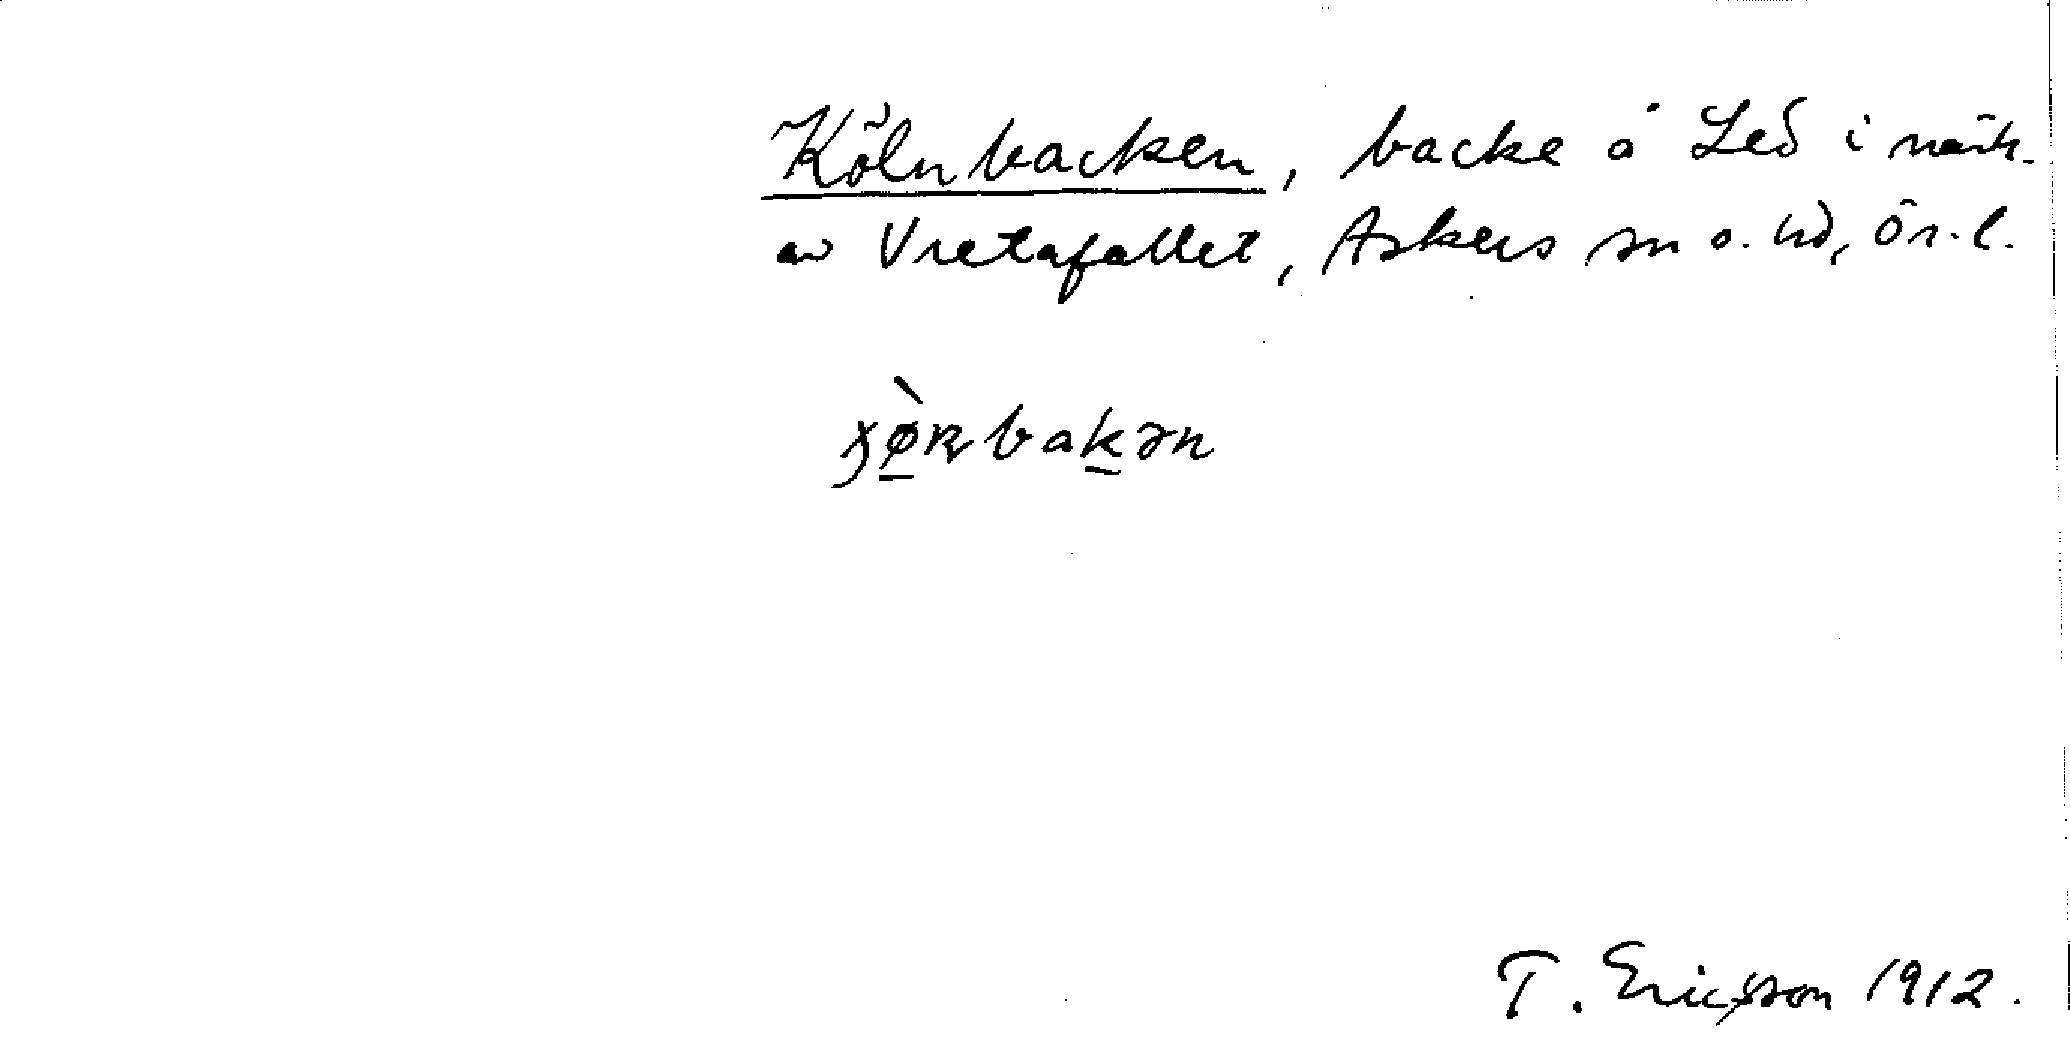 Kölnbacken, backe å Led i närh.
av Vretafallet, Askers sn o. hd, Ör. l.
bakən
T. Ericsson 1912.